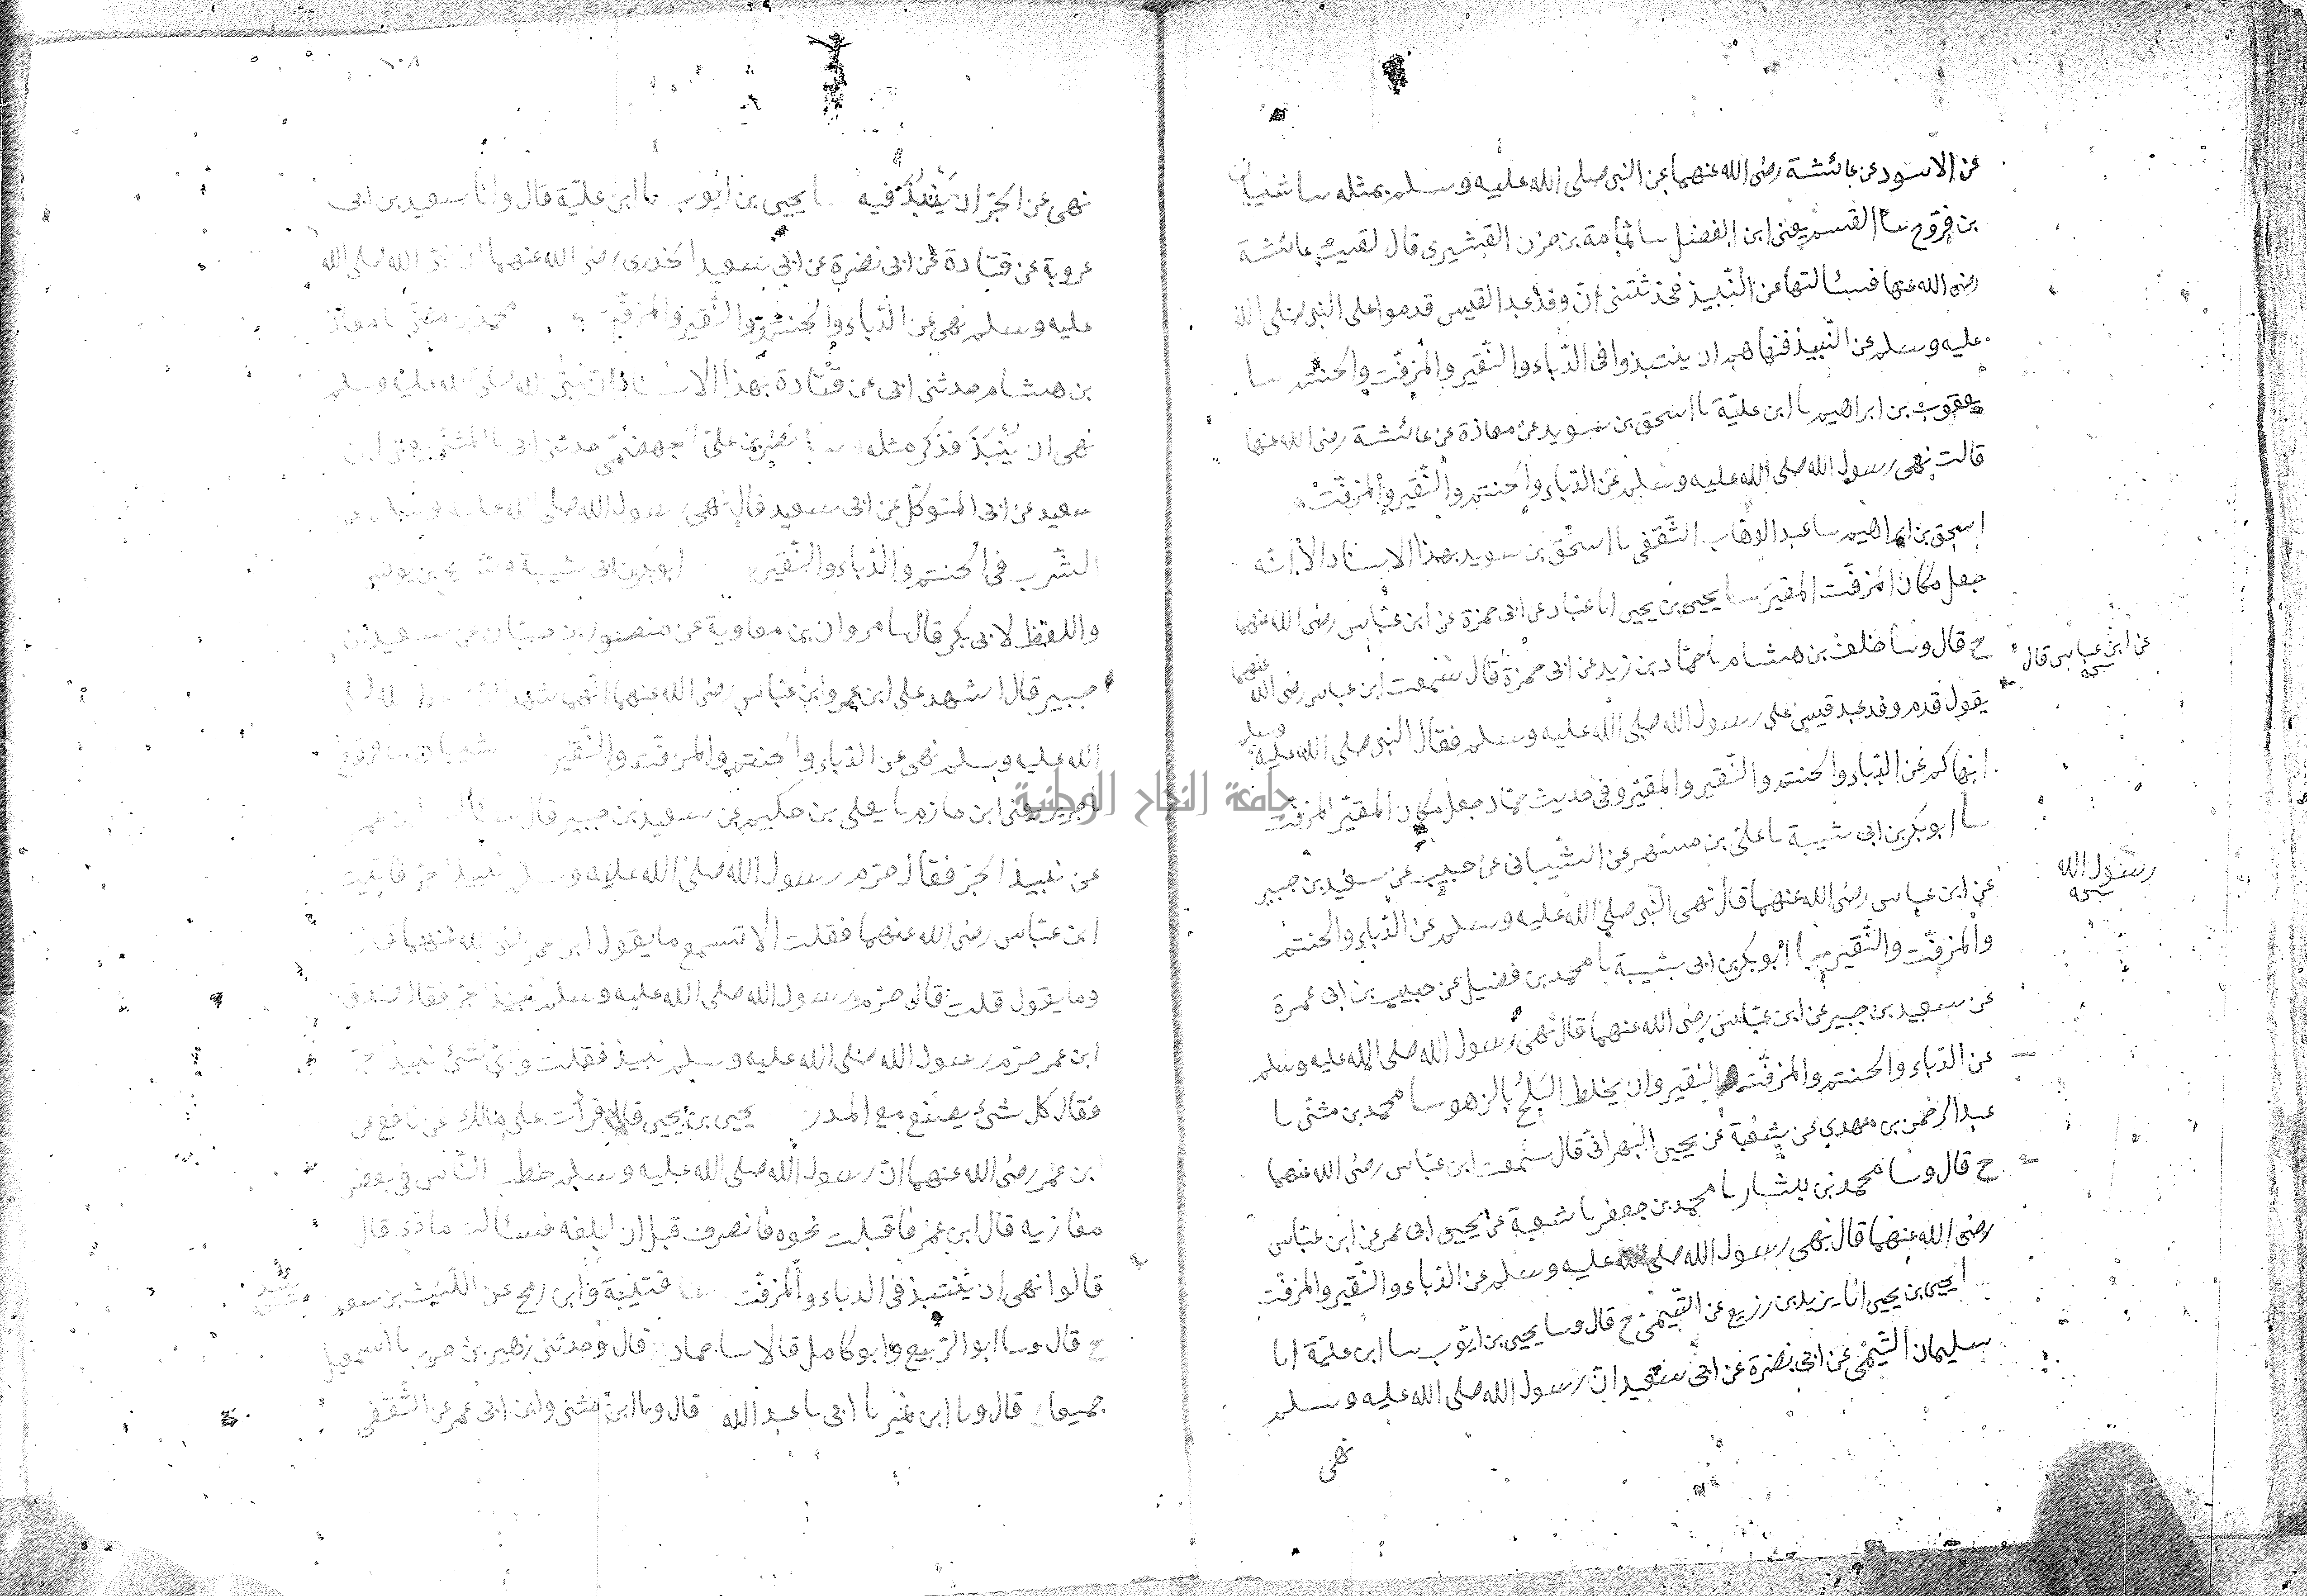 عن الاسود عن عائشة رضى الله عنهما عن النبى صلى الله عليه وسلم بمثله سا شيبان
بن فروخ سا القسم يعنى ابن الفضل سا ثمامة بن حزن القشيرى قال لقيت عائشة
رضى الله عنها فسئالتها عن النبيذ فحدثتنى انّ وفد عبد القيس قدموا على النبى صلى الله
عليه وسلم عن النبيذ فنهاهم ان ينتبذوا فى الدّباء والنّقير والمزفّت والحنتم سا
يعقوب بن ابراهيم سا ابن عليّة سا اسحق بن سويد عن معاذة عن عائشة رضى الله عنها
قالت نهى رسول الله صلى الله عليه وسلم عن الدّباء والحنتم والنّقير والمزفّت
اسحق بن ابراهيم سا عبد الوهاب الثّقفى سا اسحق بن سويد بهذا الاسناد الّا انّه
جعل مكان المزفّت المقيّر سا يحيى بن يحيى انا عباد عن ابى حمزة عن ابن عبّاس رضى الله عنهما
ح قال وسا خلف بن هشام سا حمّاد بن زيد عن ابى حمزة قال سمعت ابن عباس رضى الله عنهما
عن ابن عباس قال
صح
يقول قدم وفد عبد قيس على رسول الله صلى الله عليه وسلم فقال النبى صلى الله عليه وسلم
انهاكم عن الدّباء والحنتم والنّقير والمقيّر وفى حديث حمّاد جعل مكان المقيّر المزفّت
سا ابو بكر بن ابى شيبة سا على بن مسهر عن الشّيبانى عن حبيب عن سعيد بن جبير
عن ابن عباس رضى الله عنهما قال نهى النبى صلى الله عليه وسلم عن الدّباء والحنتم
رسول الله
صح
والمزفّت والنّقير سا ابو بكر بن ابى شيبة سا محمد بن فضيل عن حبيب بن ابى عمرة
عن سعيد بن جبير عن ابن عبّاس رضى الله عنهما قال نهى رسول الله صلى الله عليه وسلم
عن الدّباء والحنتم والمزفّت والنقير وان يخلط البلح بالزهو سا محمد بن مثنّى سا
عبد الرحمن بن مهدى عن شعبة عن يحيى البهرانى قال سمعت ابن عبّاس رضى الله عنهما
ح قال وسا محمد بن بشار سا محمد بن جعفر سا شعبة عن يحيى ابى عمر عن ابن عبّاس
رضى الله عنهما قال نهى رسول الله صلى الله عليه وسلم عن الدّباء والنّقير والمزفّت
يحيى بن يحيى انا يزيد بن زريع عن التّيمى ح قال وسا يحيى بن ايّوب سا ابن عليّة انا
سليمان التّيمى عن ابى نضرة عن ابى سعيد انّ رسول الله صلى الله عليه وسلم
نهى
١٠٨
نهى عن الجرّ ان ينبذ فيه سا يحيى بن ايّوب سا ابن عليّة قال وانا سعيد بن ابى
عروبة عن قتادة عن ابى نضرة عن ابى سعيد الخدرى رضى الله عنهما انّ نبىّ الله صلى الله
عليه وسلم نهى عن الدّباء والحنتم والنّقير والمزفّت محمد بن مثنّى سا معاذ
بن هشام حدثنى ابى عن قتادة بهذا الاسناد انّ نبىّ الله صلى الله عليه وسلم
نهى ان ينبذ فذكر مثله سا نصر بن علىّ الجهضمى حدثنى ابى سا المثنّى يعنى ابن
سعيد عن ابى المتوكّل عن ابى سعيد قال نهى رسول الله صلى الله عليه وسلم عن
الشّرب فى الحنتم والدّباء والنّقير ابو بكر بن ابى شيبة وسريج بن يونس
واللفظ لابى بكر قالا سا مروان بن معاوية عن منصور بن حيّان عن سعيد بن
جبير قال اشهد على ابن عمر وابن عبّاس رضى الله عنهما انّهما شهدا انّ رسول الله صلى
الله عليه وسلم نهى عن الدّباء والحنتم والمزفّت والنّقير شيبان بن فروخ
سا جرير يعنى ابن حازم سا يعلى بن حكيم عن سعيد بن جبير قال سئالت ابن عمر
جامعة النجاح الوطنية
عن نبيذ الجرّ فقال حرّم رسول الله صلى الله عليه وسلم نبيذ الجرّ فاتيت
ابن عبّاس رضى الله عنهما فقلت الا تسمع ما يقول ابن عمر رضى الله عنهما قال
وما يقول قلت قال حرّم رسول الله صلى الله عليه وسلم نبيذ الجرّ فقال صدق
ابن عمر حرّم رسول الله صلى الله عليه وسلم نبيذ فقلت واىّ شئ نبيذ الجرّ
فقال كل شئ يصنع مع المدر يحيى بن يحيى قال قرأت على مالك عن نافع عن
ابن عمر رضى الله عنهما انّ رسول الله صلى الله عليه وسلم خطب النّاس فى بعض
مغازيه قال ابن عمر فاقبلت نحوه فانصرف قبل ان ابلغه فسئالت ماذى قال
قالوا نهى ان ينتبذ فى الدباء والمزفّت سا قتيبة وابن رمح عن اللّيث بن سعد
ح قال وسا ابو الرّبيع وابو كامل قالا سا حماد قال وحدثنى زهير بن حرب سا اسمعيل
جميعا قال وسا ابن نمير سا ابى سا عبد الله قال وسا ابن مثنى وابن ابى عمر عن الثّقفى